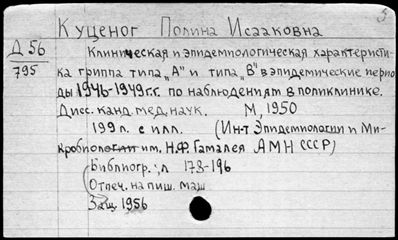 Куценог Полина Исааковна
Д 56
795
Клиническая и эпидемиологическая характеристи-
ка гриппа типа „А" и типа „В" в эпидемические перио-
ды 1946-1949 г.г. по наблюдениям в поликлинике.
Дисс. канд. мед. наук. М, 1950
199 л. с илл. (Ин-т Эпидемиологии и Ми-
кробиологии им. Н.Ф. Гамалея АМН СССР)
Библиогр.: л 178-196
Отпеч. на пиш. маш
Защ. 1956